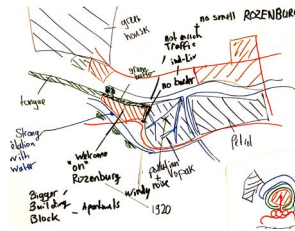 no smell ROZENBURG
green
house
not much
traffic
ind-Liv
green
buffer
no border
tongue
Strong
relation
with
water
"welcome
on"
Rozenburg
pollution
+
noise
Vopak
Petrol
windy
Bigger
Building
Block
- Apartments
1920